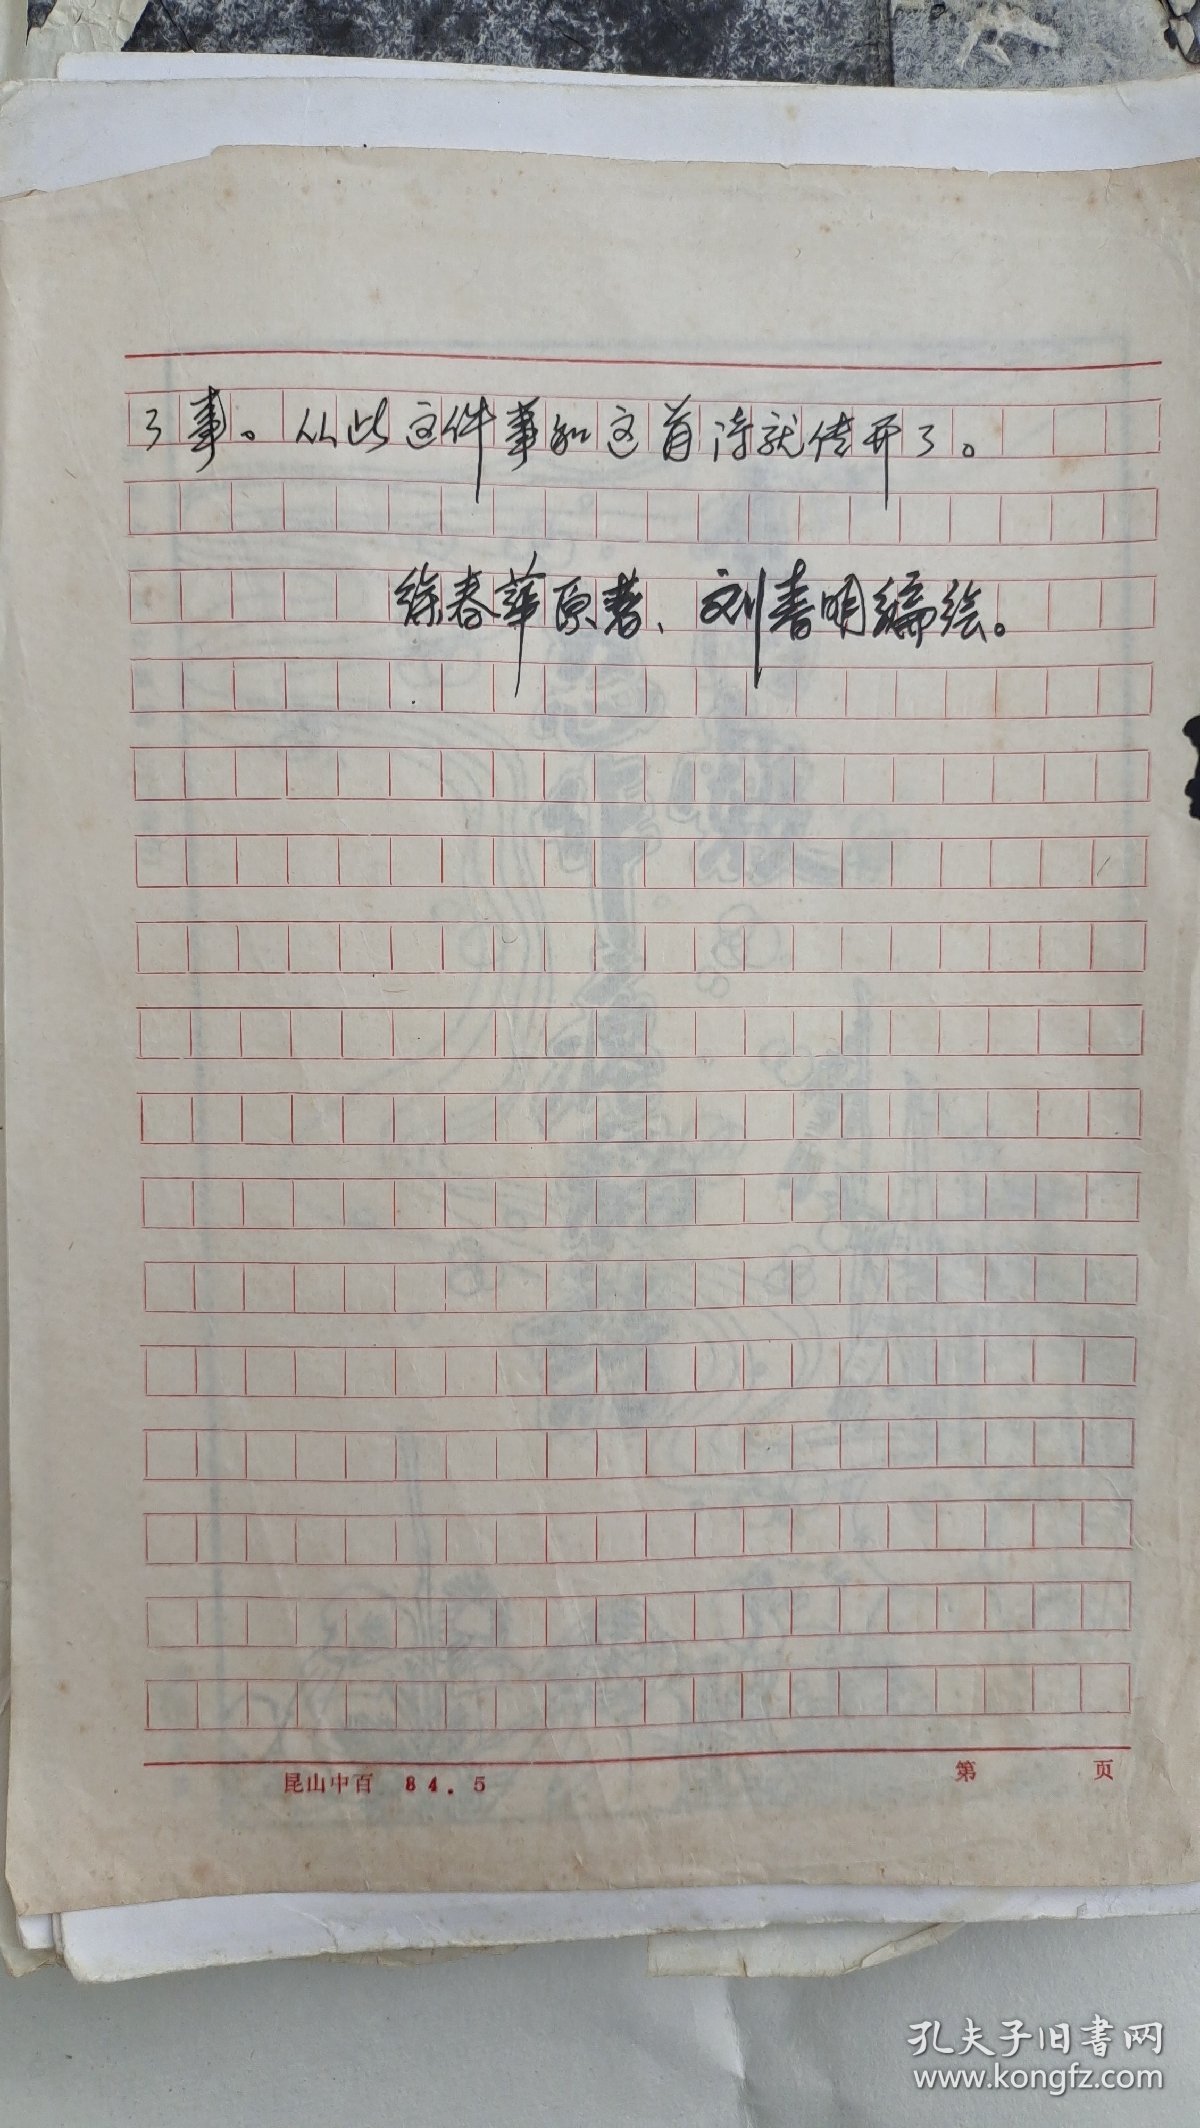 了事。从此这件事和这首诗就传开了。
徐春华原著、刘春明编绘。
昆山中百 84.5
第 页
孔夫子旧书网
www.kongfz.com